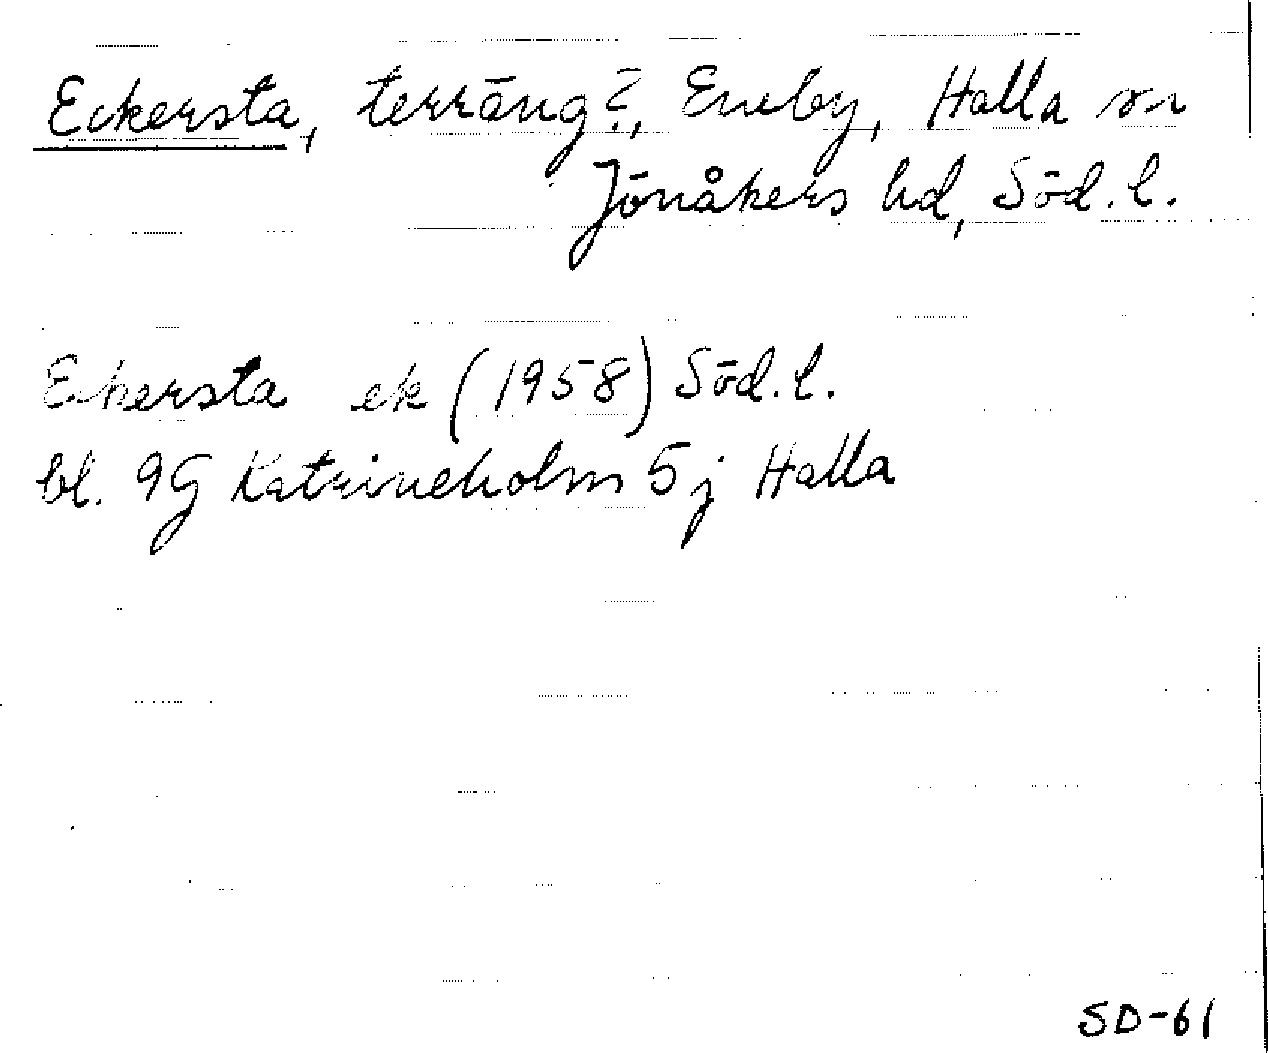 Eckersta, terräng?, Eneby, Halla sn
Jönåkers hd, Söd.l.
Eckersta ek (1958) Söd.l.
bl. 9G Katrineholm 5j Halla
SD-61